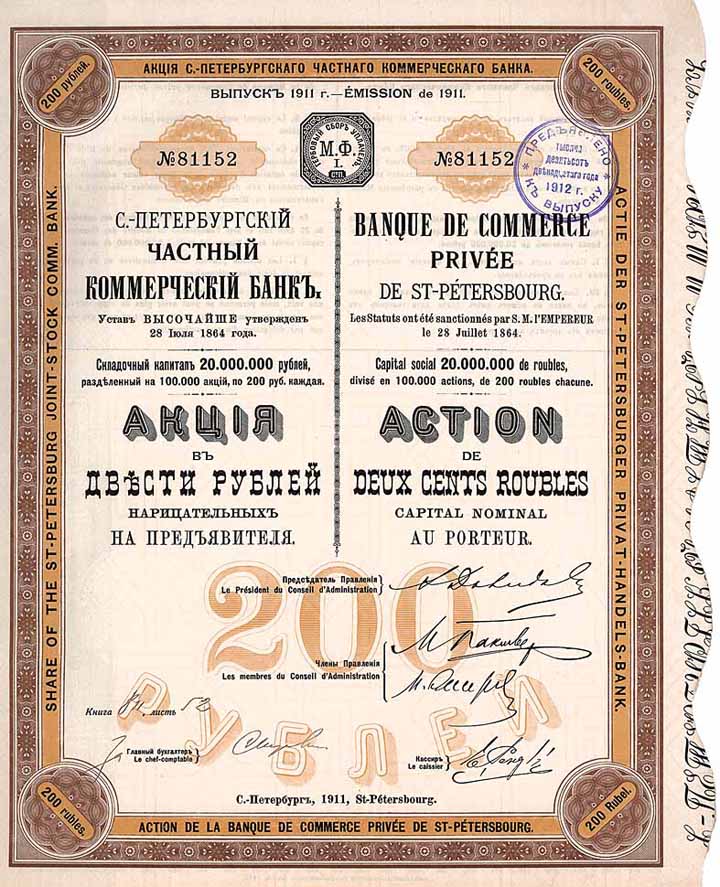 200 рублей.
АКЦІЯ С.-ПЕТЕРБУРГСКАГО ЧАСТНАГО КОММЕРЧЕСКАГО БАНКА.
200 roubles.
ВЫПУСКЪ 1911 г.—ÉMISSION de 1911.
№81152
ГЕРБОВЫЙ СБОРЪ УПЛАЧЕНЪ
М.Ф.
I.
№81152
* ПРЕДЪЯВЛЕНО *
тысяча
девятьсотъ
двѣнадцатаго года
1912 г.
КЪ ВЫПУСКУ
С.-ПЕТЕРБУРГСКІЙ
ЧАСТНЫЙ
КОММЕРЧЕСКІЙ БАНКЪ.
Уставъ ВЫСОЧАЙШЕ утвержденъ
28 Іюля 1864 года.
Складочный капиталъ 20.000.000 рублей,
раздѣленный на 100.000 акцій, по 200 руб. каждая.
АКЦІЯ
ВЪ
ДВѢСТИ РУБЛЕЙ
НАРИЦАТЕЛЬНЫХЪ
НА ПРЕДЪЯВИТЕЛЯ.
BANQUE DE COMMERCE
PRIVÉE
DE ST-PÉTERSBOURG.
Les Statuts ont été sanctionnés par S. M. l'EMPEREUR
le 28 Juillet 1864.
Capital social 20.000.000 de roubles,
divisé en 100.000 actions, de 200 roubles chacune.
ACTION
DE
DEUX CENTS ROUBLES
CAPITAL NOMINAL
AU PORTEUR.
200
РУБЛЕЙ
Предсѣдатель Правленія
Le Président du Conseil d'Administration
Члены Правленія
Les membres du Conseil d'Administration
Книга 81, листъ 52
Главный бухгалтеръ
Le chef-comptable
Кассиръ
Le caissier
С.-Петербургъ, 1911, St-Pétersbourg.
SHARE OF THE ST-PETERSBURG JOINT-STOCK COMM. BANK.
ACTIE DER ST-PETERSBURGER PRIVAT-HANDELS-BANK
200 rubles.
ACTION DE LA BANQUE DE COMMERCE PRIVÉE DE ST-PÉTERSBOURG.
200 Rubel.